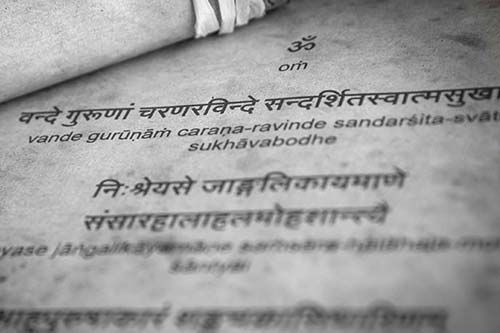 ॐ
oṁ
वन्दे गुरूणां चरणरविन्दे सन्दर्शितस्वात्मसुखा
vande gurūṇāṁ caraṇa-ravinde sandarśita-svāt
sukhāvabodhe
निःश्रेयसे जाङ्गलिकायमाने
संसारहालाहलमोहशान्त्यै
yase jāṅgalikāyamāne saṁsāra hālāhala
śāntyai